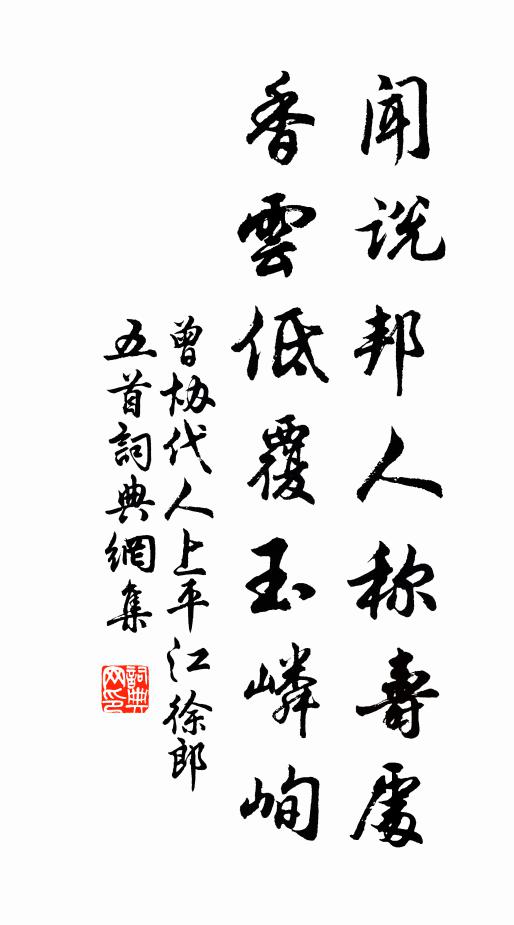 闻说邦人称寿处
香云低覆玉嶙峋
曾协代人上平江徐郎
五首词典网集
词典网印